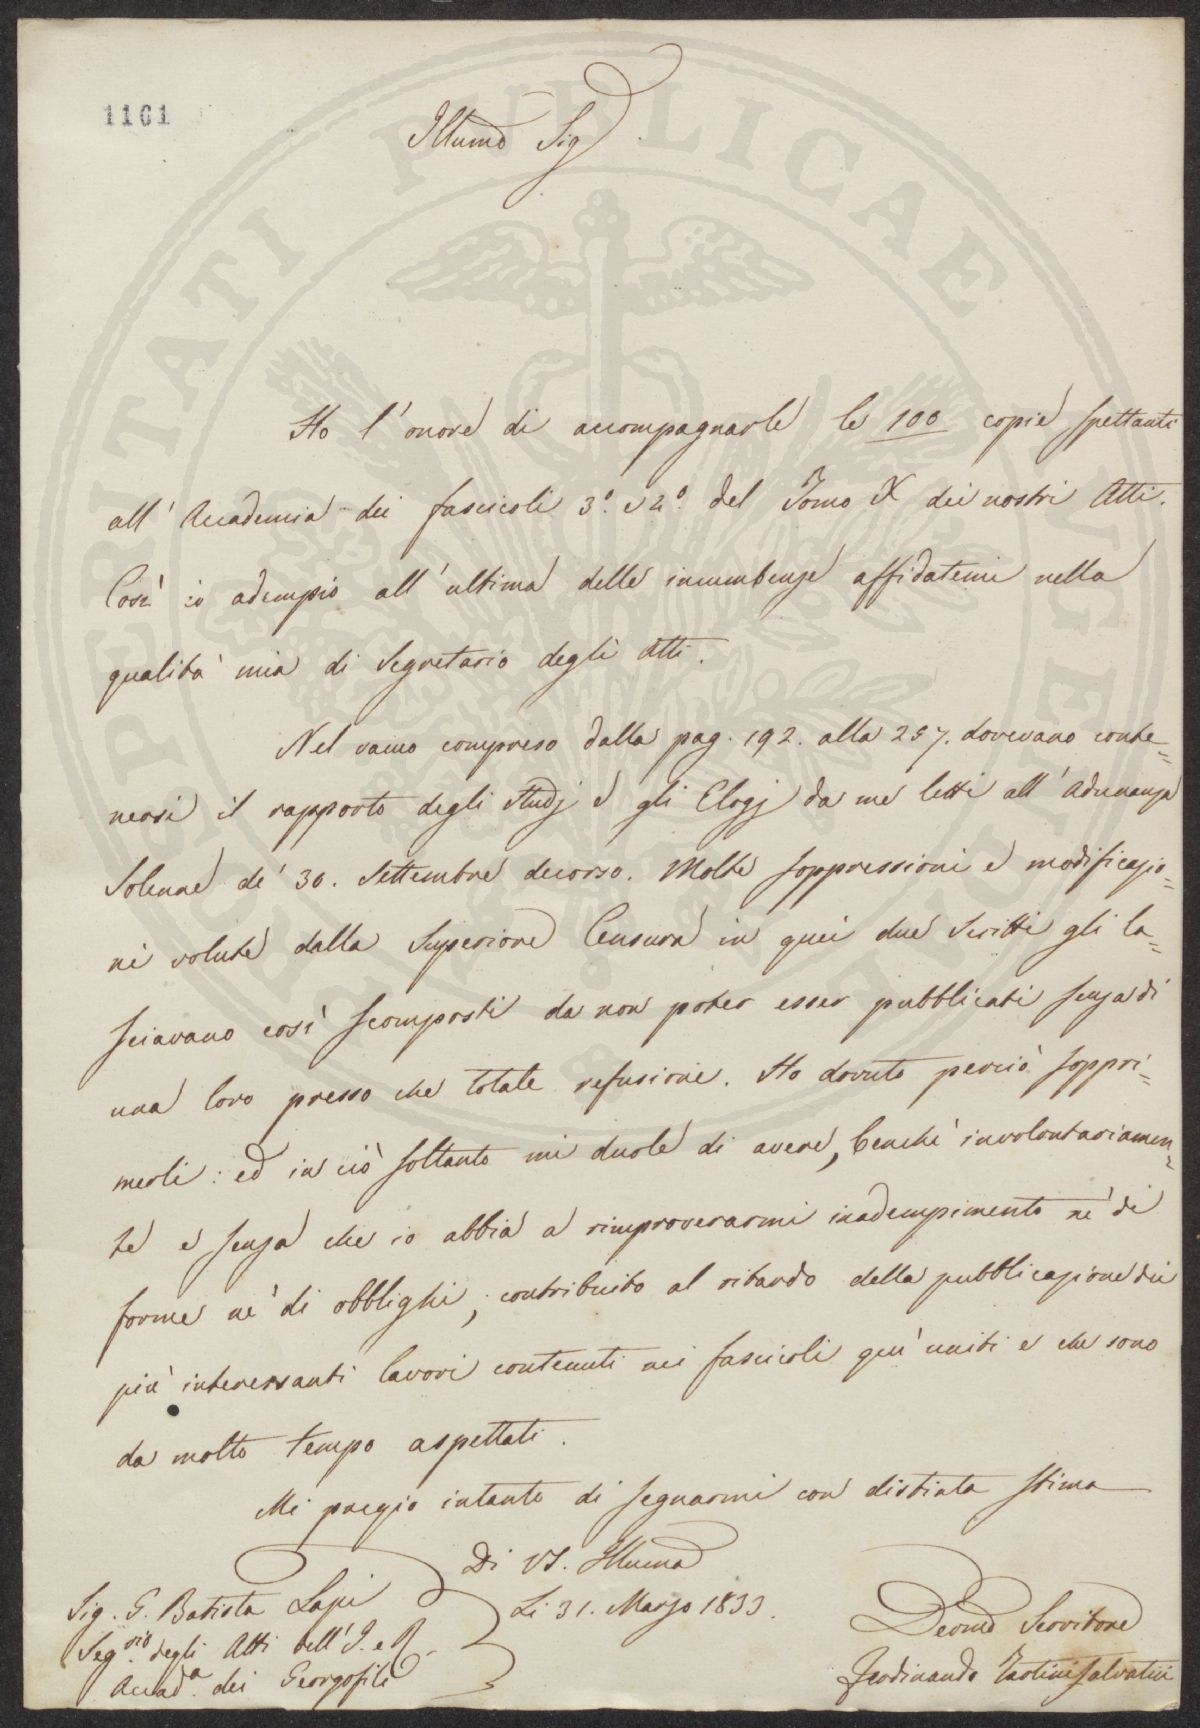 1161
PROSPERITATI PUBLICAE AUGENDAE
Illumo Sig
Ho l'onore di accompagnarle le 100 copie spettanti
all'Accademia dei fascicoli 3.° e 4.° del Tomo X dei nostri Atti.
Così io adempio all'ultima delle incumbenze affidatemi nella
qualità mia di Segretario degli Atti.
Nel vano compreso dalla pag. 192. alla 257. dovevano conte=
nersi il rapporto degli Studj e gli Elogj da me letti all'Adunanza
Solenne de' 30. Settembre decorso. Molte soppressioni e modificazio=
ni volute dalla Superiore Censura in quei due Scritti gli la=
sciavano così scomposti da non poter esser pubblicati senza di
una loro presso che totale refusione. Ho dovuto perciò soppri=
merli: ed in ciò soltanto mi duole di avere, benchè involontariamen=
te e senza che io abbia a rimproverarmi inadempimento nè di
forme nè di obblighi, contribuito al ritardo della pubblicazione dei
più interessanti lavori contenuti nei fascicoli quì uniti e che sono
da molto tempo aspettati.
Mi pregio intanto di segnarmi con distinta stima
Di VS. Illuma
Li 31. Marzo 1833.
Sig. G. Batista Lapi
Seg.rio degli Atti dell'I. e R.
Accad.a dei Georgofili
Devmo Servitore
Ferdinando Tartini Salvatici